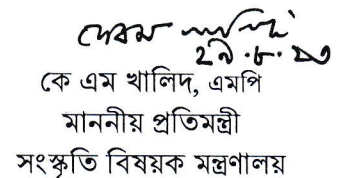 ২৯.৮.২৩
কে এম খালিদ, এমপি
মাননীয় প্রতিমন্ত্রী
সংস্কৃতি বিষয়ক মন্ত্রণালয়